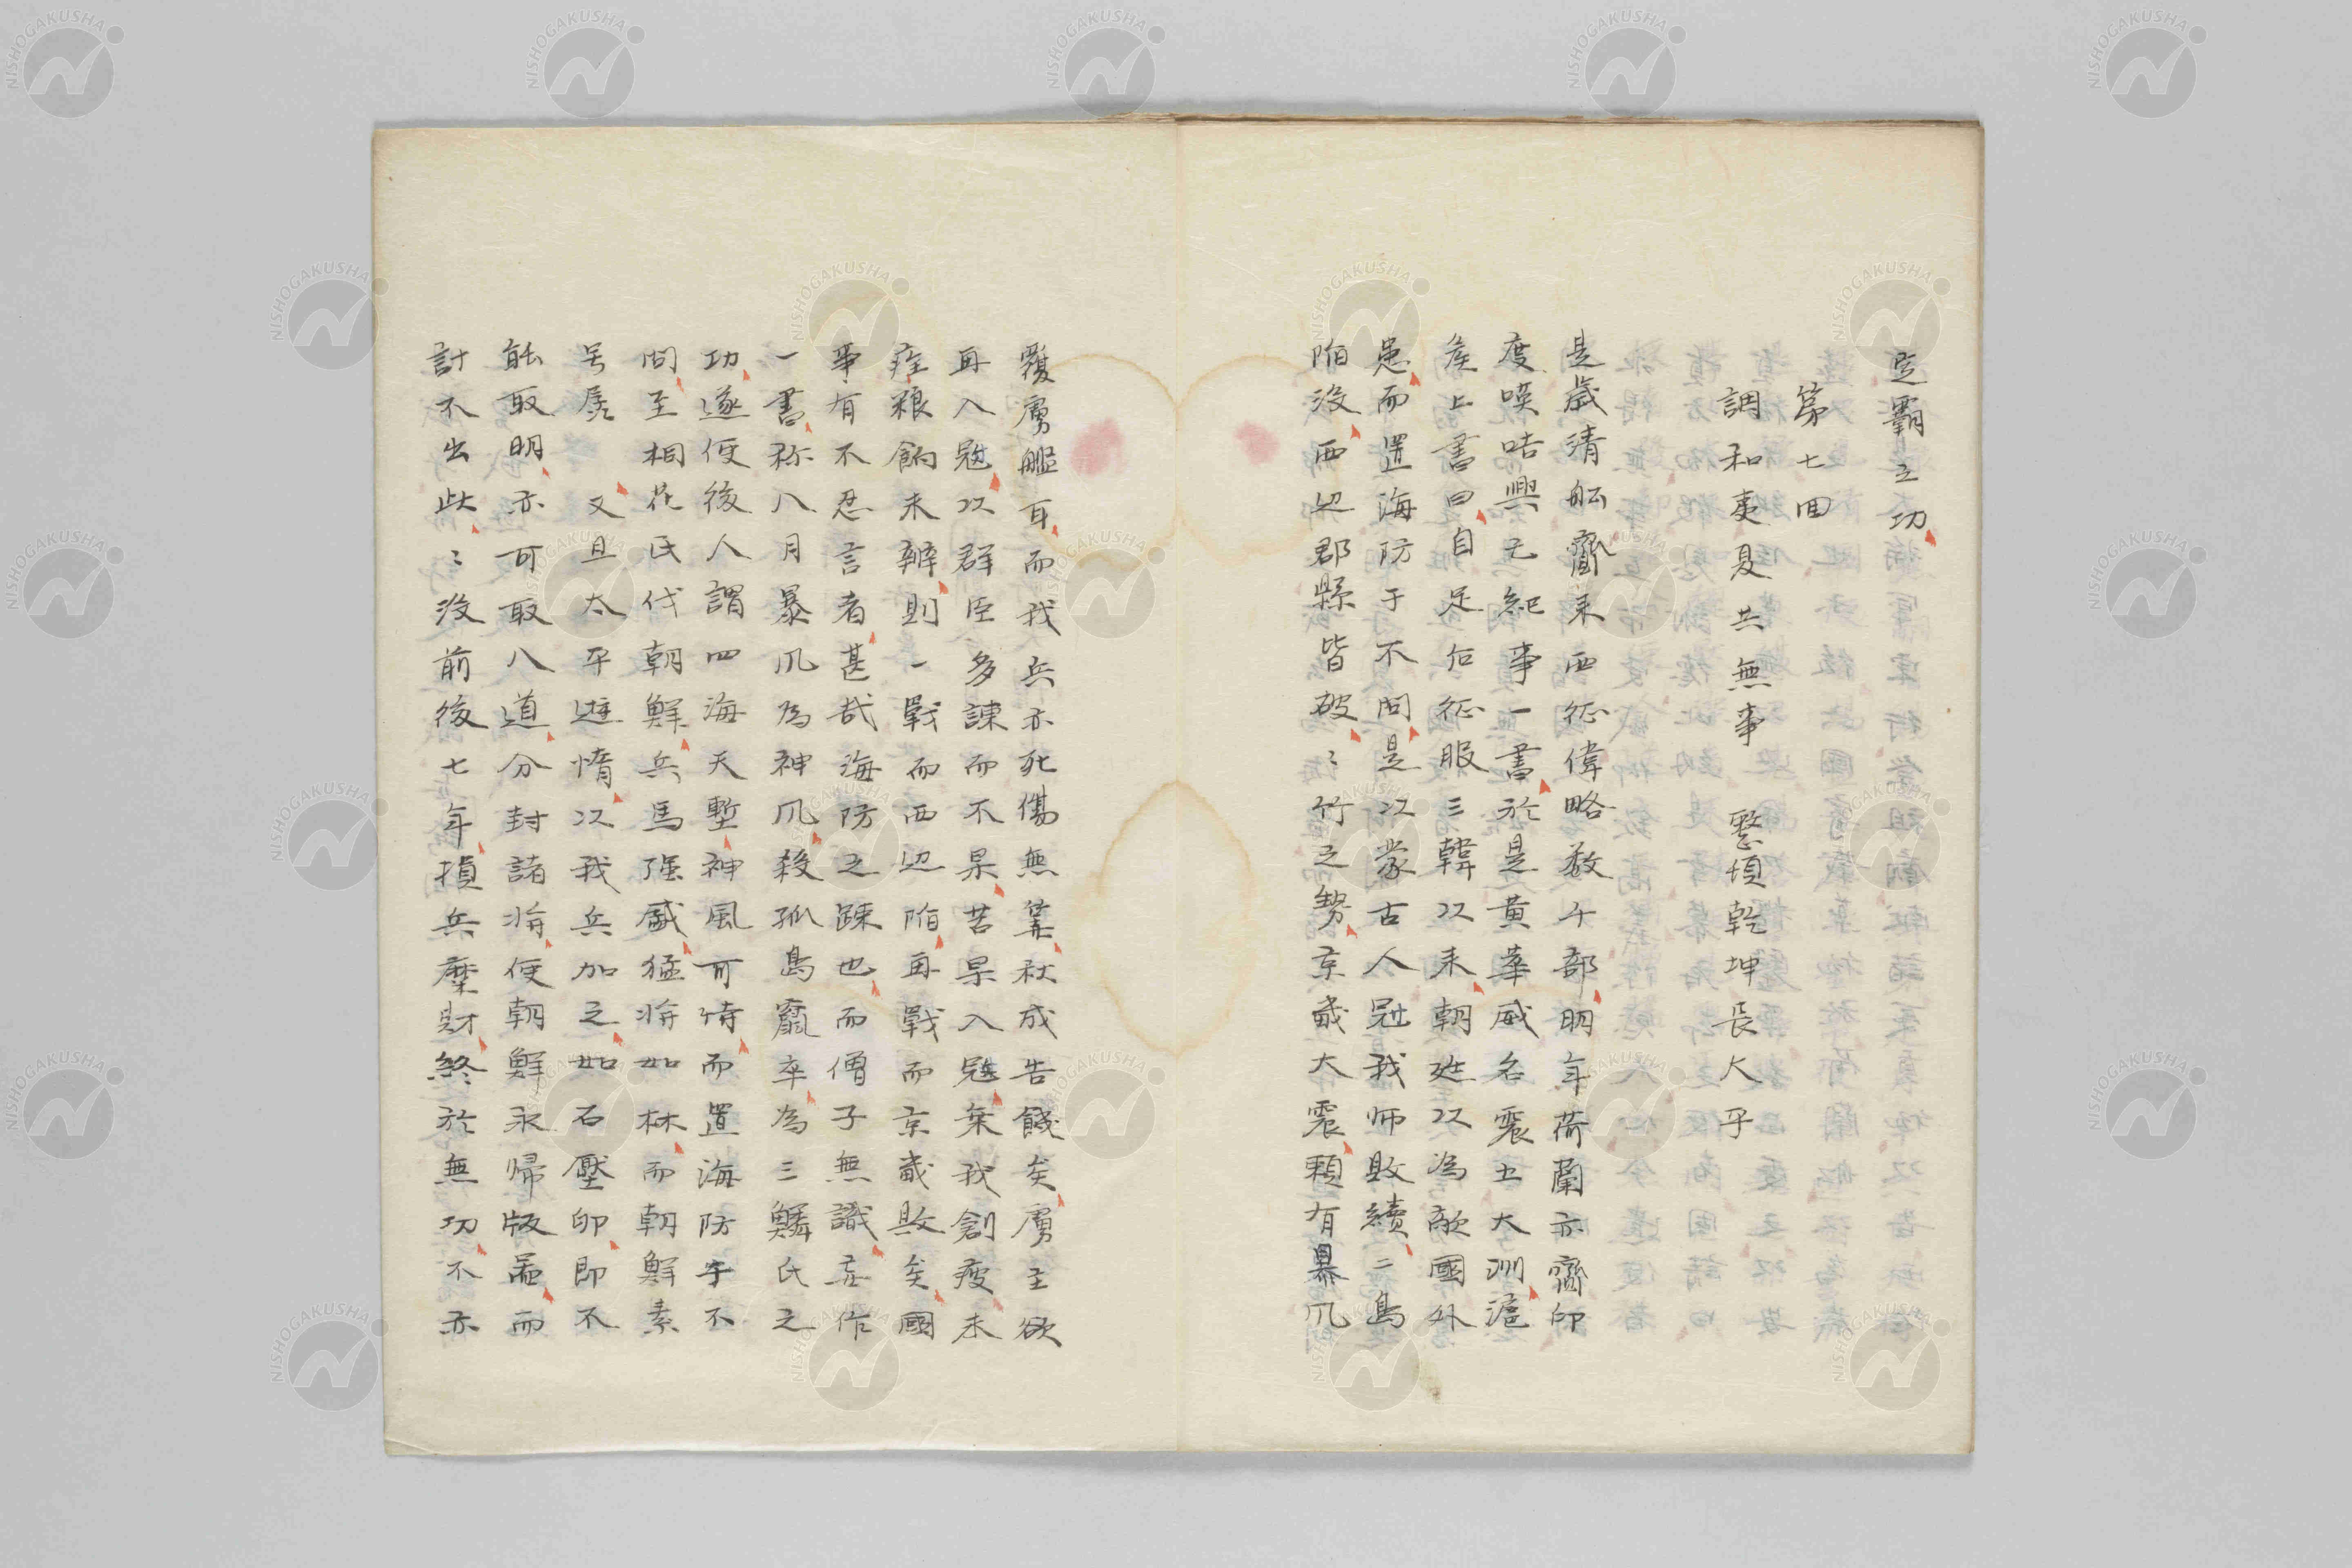 定霸之功
第七回
調和夷夏共無事　　整頓乾坤長太平
是歲清舶齎来西征偉略数千部明年荷蘭亦齎印
度嘆咭與元紀事一書於是黄華威名震五大洲滬
矦上書曰自足伝征服三韓以来朝廷以為敵國外
患而置海防于不問是以蒙古人冦我师敗績二島
陌没西辺郡縣皆破〻竹之勢京畿大震頼有暴凨
覆虜艦耳而我兵亦死傷無筭秋成告饑矣虜主欲
再入冦以群臣多諌而不果若果入冦乗我創痍未
痊粮餉未辨則一戰而西辺陌再戰而京畿敗矣國
事有不忍言者甚哉海防之踈也而僧子無識妄作
一書称八月暴凨為神凨殺孤島窮卒為三鱗氏之
功遂使後人謂四海天塹神風可恃而置海防乎不
問至桐花氏伐朝鮮兵馬强盛猛将如林而朝鮮素
号孱　又且太平遊惰以我兵加之如石壓卵即不
能取明亦可取八道分封諸将使朝鮮永帰版圖而
計不出此〻没前後七年損兵糜財終於無功不亦